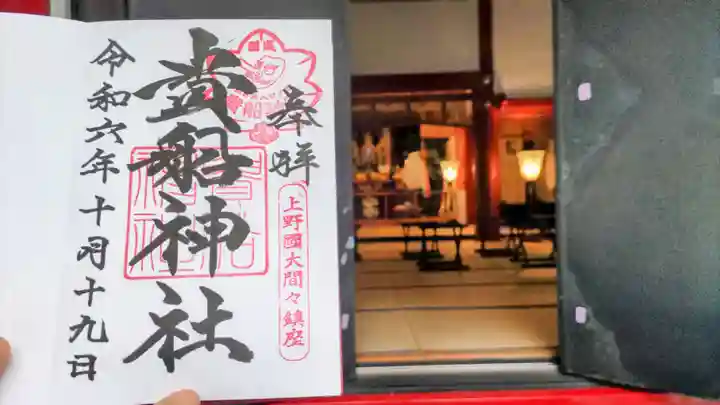 奉拝
上野國大間々鎮座
貴船神社
令和六年十月十九日